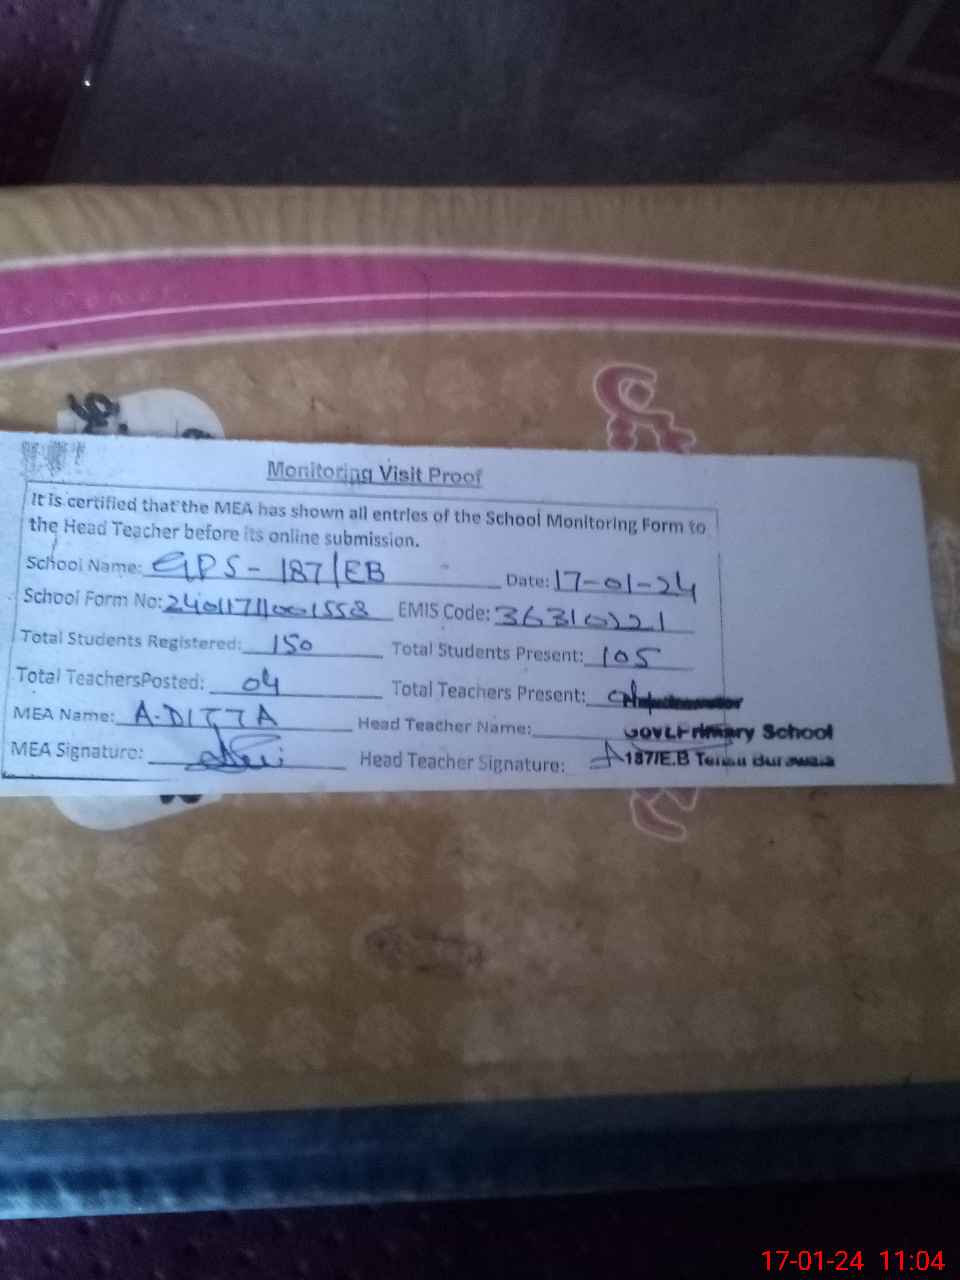 Monitoring Visit Proof
It is certified that the MEA has shown all entries of the School Monitoring Form to
the Head Teacher before its online submission.
School Name: GPS - 187/EB Date: 17-01-24
School Form No: 2401171001558 EMIS Code: 36310221
Total Students Registered: 150 Total Students Present: 105
Total TeachersPosted: 04 Total Teachers Present:
MEA Name: A-DITTA Head Teacher Name:
Govt.Primary School
MEA Signature: Head Teacher Signature:
187/E.B Tehsil Burewala
17-01-24 11:04